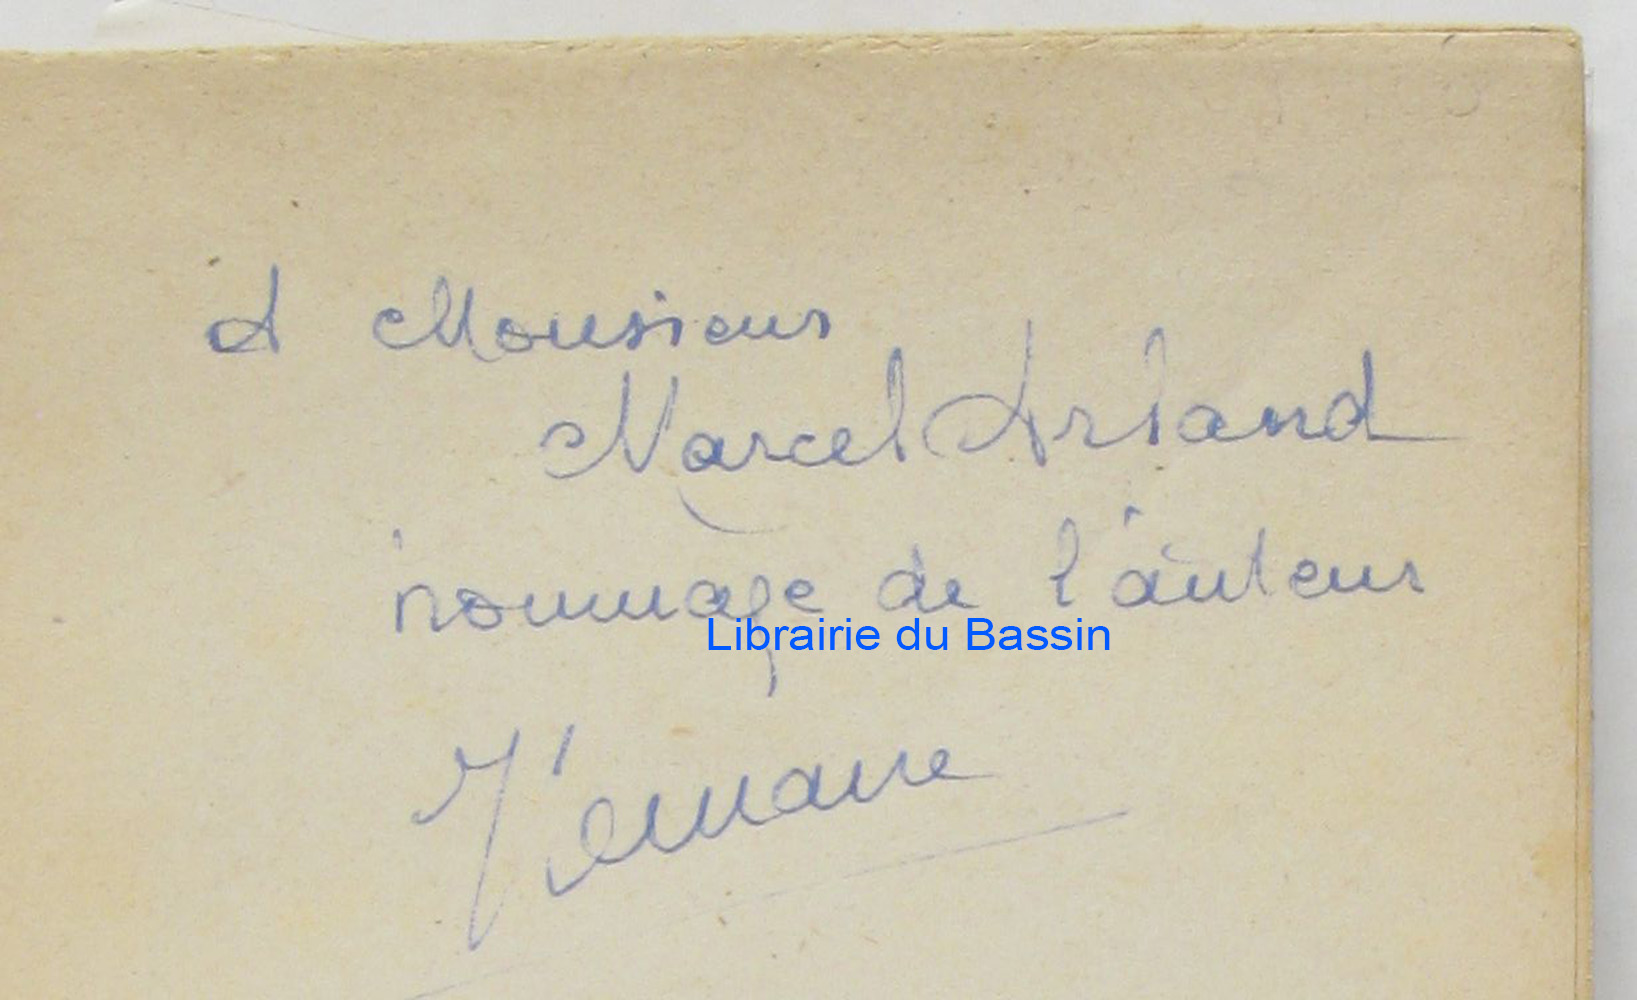 A Monsieur
Marcel Arland
hommage de l'auteur
Librairie du Bassin